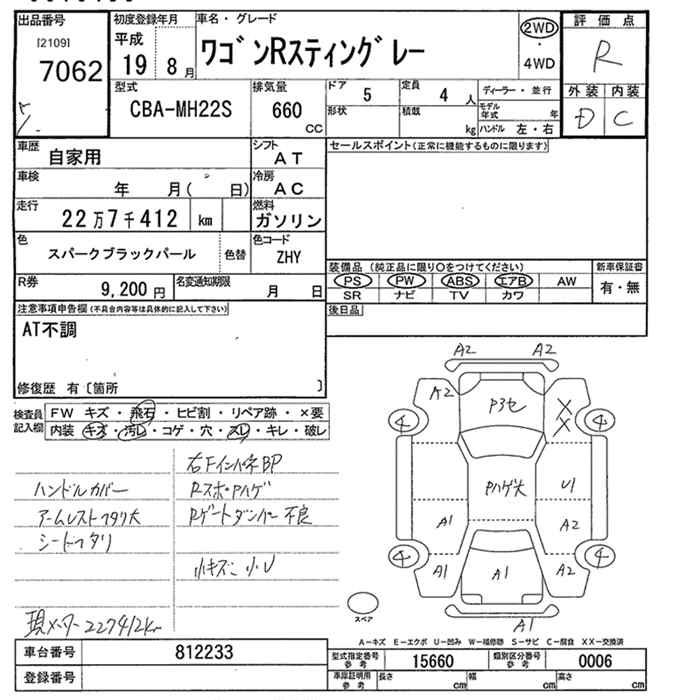 出品番号
[2109]
7062
初度登録年月
平成
19 8 月
車名・グレード
ワゴンRスティングレー
2WD
・
4WD
評価点
R
外装 内装
D C
型式
CBA-MH22S
排気量
660
CC
ドア 5
形状
定員 4 人
積載 kg
ディーラー・並行
モデル年式 年
ハンドル 左・右
車歴 自家用
シフト AT
車検 年 月( 日)
冷房 AC
走行 22万7千412 km
燃料 ガソリン
色 スパークブラックパール 色替
色コード ZHY
R券 9,200円
名変通知期限 月 日
セールスポイント(正常に機能するものに限ります)
装備品 (純正品に限り○をつけてください)
新車保証書
PS PW ABS エアB AW
有・無
SR ナビ TV カワ
後日品
注意事項申告欄(不具合内容等は具体的に記入して下さい)
AT不調
修復歴 有〔箇所 〕
検査員記入欄
FW キズ・飛石・ヒビ割・リペア跡・×要
内装 キズ・汚レ・コゲ・穴・スレ・キレ・破レ
右FインパネBP
ハンドルカバー
RスポPハゲ
アームレストフタリ大
Rゲートダンパー不良
シートフタリ
小キズ 小U
現メーター227412km
A2 A2
A2
P3セ
X
X
4 4
Pハゲ大
U1
A1 A2
4 4
A1 A1 A2
A1
スペア
A-キズ E-エクボ U-凹み W-補修跡 S-サビ C-腐食 XX-交換済
車台番号 812233
登録番号
型式指定番号 参考 15660
類別区分番号 参考 0006
車庫証明用 参考
長さ cm
幅 cm
高さ cm